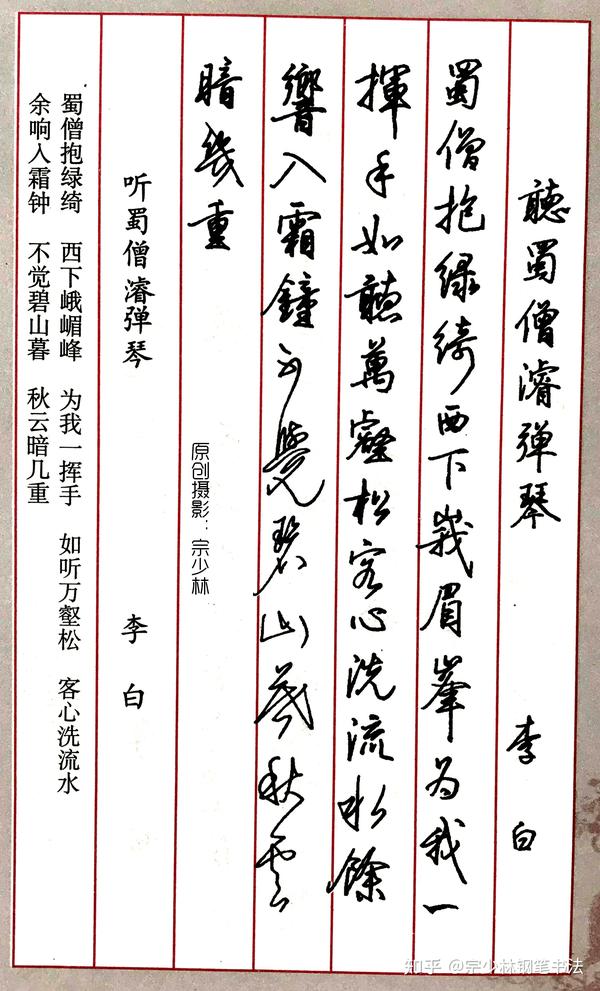 聽蜀僧濬弹琴 李白
蜀僧抱绿绮西下峩眉峯为我一
揮手如聽萬壑松客心洗流水餘
響入霜鐘不覺碧山暮秋雲
暗幾重
听蜀僧濬弹琴 李白
蜀僧抱绿绮 西下峨嵋峰 为我一挥手 如听万壑松 客心洗流水
余响入霜钟 不觉碧山暮 秋云暗几重
原创摄影：宗少林
知乎 @宗少林钢笔书法